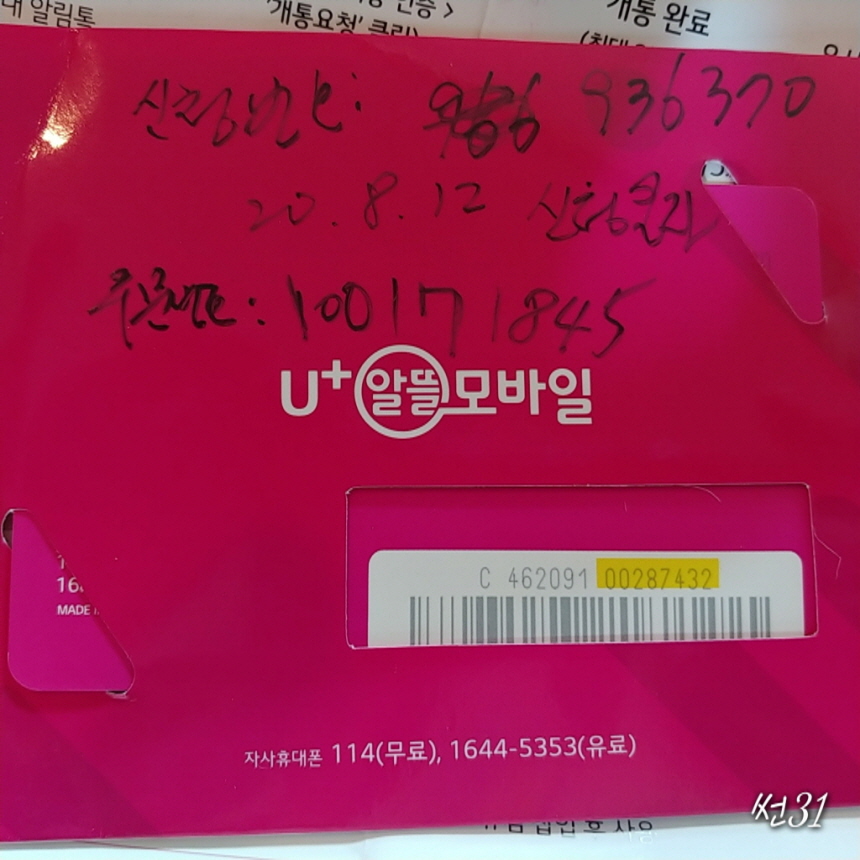 '개통요청' 클릭)
개통 완료
신청번호: 936370
20.8.12 신청일자
주문번호: 100171845
U+알뜰모바일
C 462091 00287432
MADE
자사휴대폰 114(무료), 1644-5353(유료)
썬31